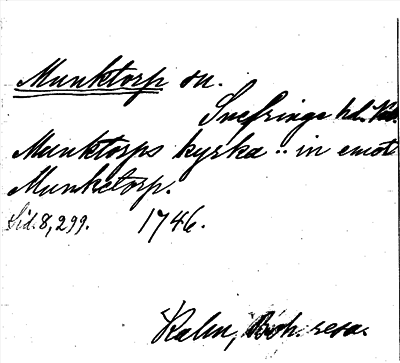 Munktorp sn.
Snefringe hd. Vstm.
Munktorps kyrka .. in emot
Munketorp.
Sid. 8, 299. 1746.
Kalm, Boh. resa.